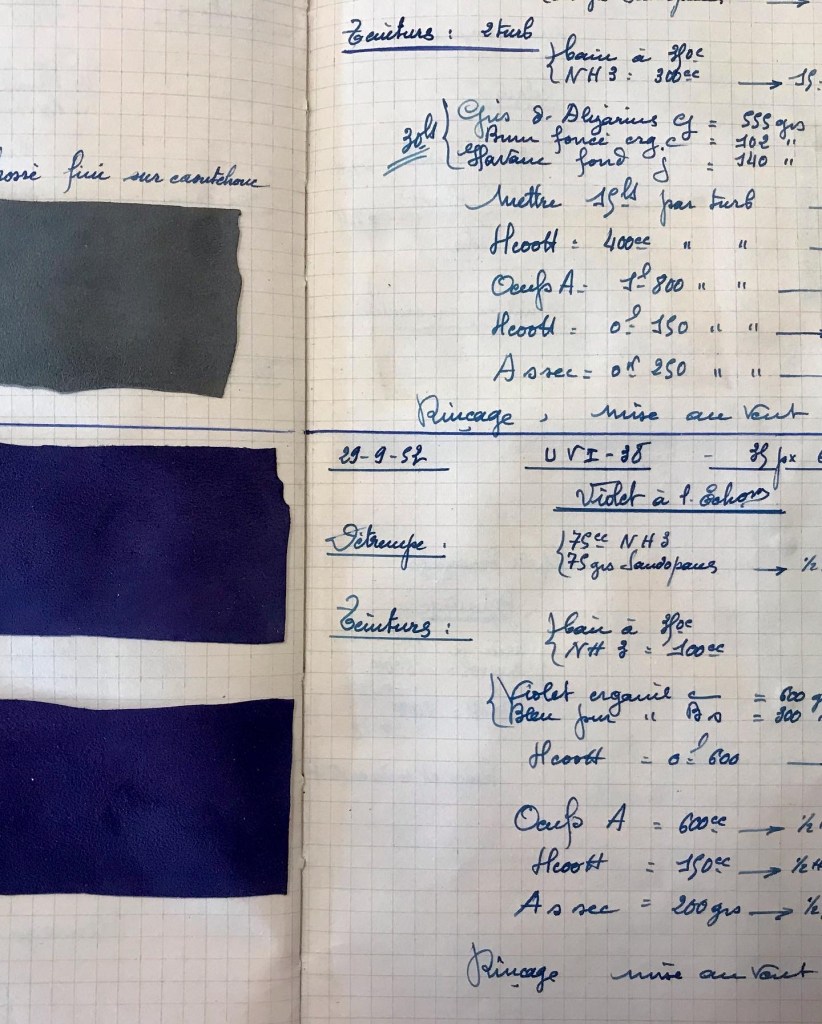 fini sur caoutchouc
Teinture : 2 turb
bain à
NH3 : 300cc → 15
Gris d. Alizarine G = 555 grs
Brun foncé erg. c = 102 "
Havane fond J = 140 "
30ls
Mettre 15ls par turb
Hcooh = 400cc " "
Oeufs A = 1l 800 " "
Hcooh = 0l 150 " "
A ssec = 0k 250 " "
Rinçage, mise au vent
29-9-52 UVI-38 - 35 px
Violet à l. Echons
Détrempe :
75cc NH3
75 grs Sandopans → 1/2
Teinture :
bain à
NH3 = 100cc
Violet erganil c = 600 g
Bleu " Bs = 300 "
Hcooh = 0l 600
Oeufs A = 600cc → 1/2
Hcooh = 150cc → 1/2 H
A s sec = 200 grs → 1/2
Rinçage mise au vent